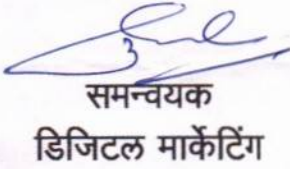 समन्वयक
डिजिटल मार्केटिंग